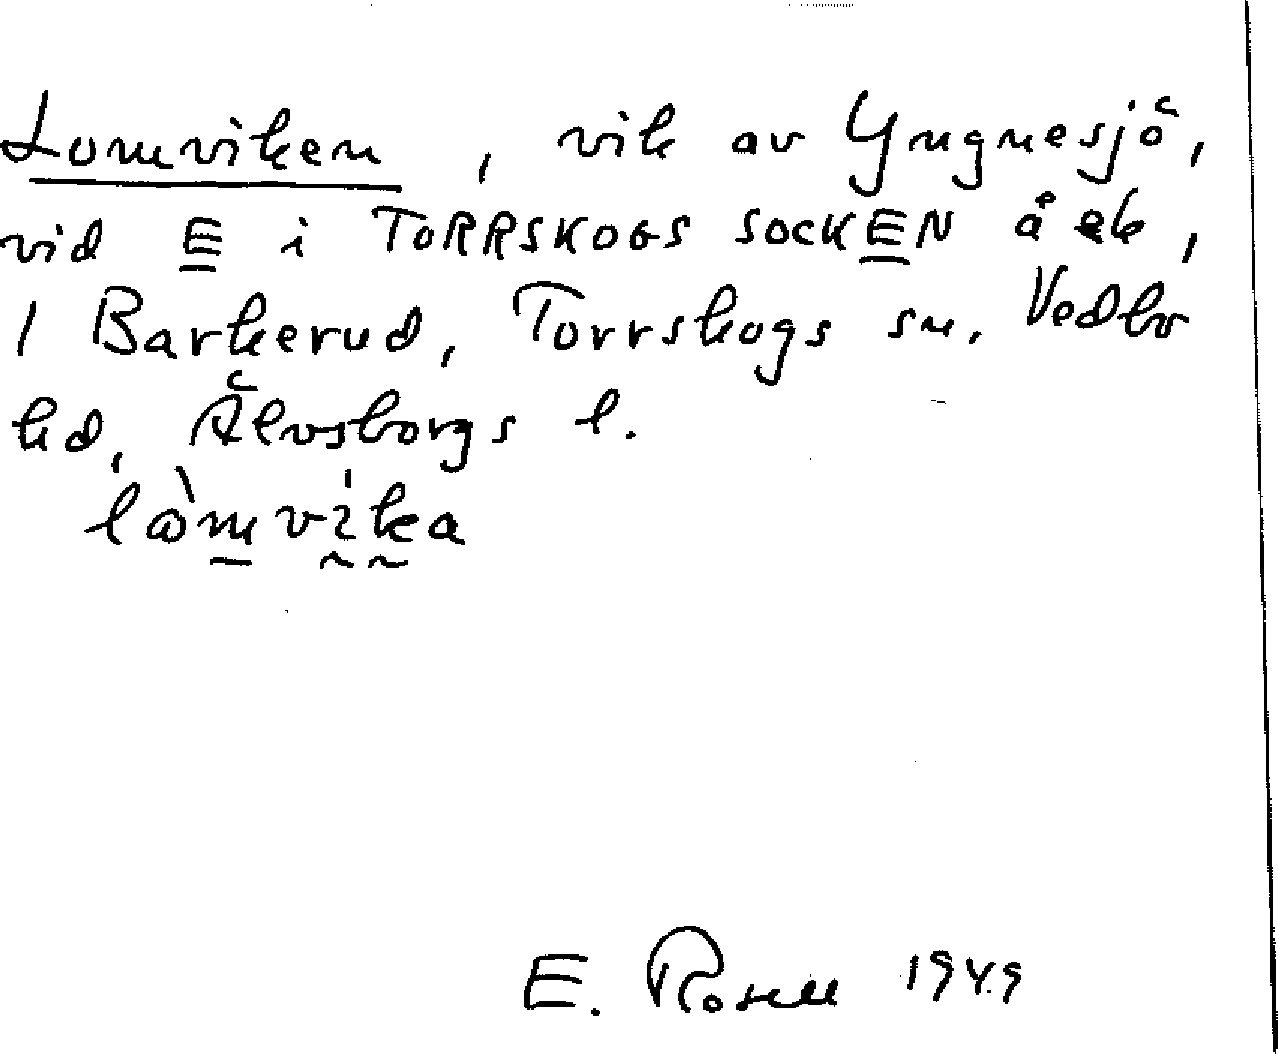 Lomviken, vik av Yngnesjö,
vid E i TORRSKOGS SOCKEN å ek,
1 Barkerud, Torrskogs sn. Vedbo
hd, Älvsborgs l.
E. Rosell 1949